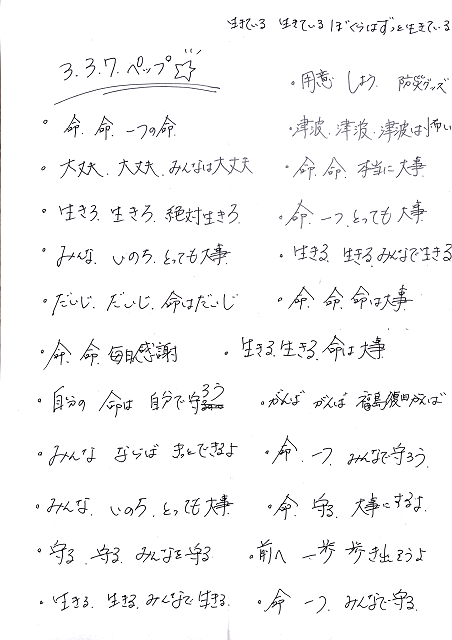 生きている 生きている ぼくらはずっと生きている
3.3.7.ペップ☆
・命、命、一つの命
・大丈夫、大丈夫、みんなは大丈夫
・生きろ、生きろ、絶対生きろ
・みんな、いのち、とっても大事
・だいじ、だいじ、命はだいじ
・命、命、毎日感謝
・自分の 命は 自分で守ろう
・みんな ならば きっとできるよ
・みんな、いのち、とっても大事
・守る、守る、みんなを守る
・生きる、生きる、みんなで生きる
・用意 しよう 防災グッズ
・津波、津波、津波は怖い
・命、命、本当に大事
・命、一つ、とっても大事
・生きる、生きる、みんなで生きる
・命、命、命は大事
・生きる、生きる、命は大事
・がんば がんば 福島復興がんば
・命、一つ、みんなで守ろう
・命、守る、大事にするよ
・前へ 一歩 歩き出そうよ
・命 一つ、みんなで守る